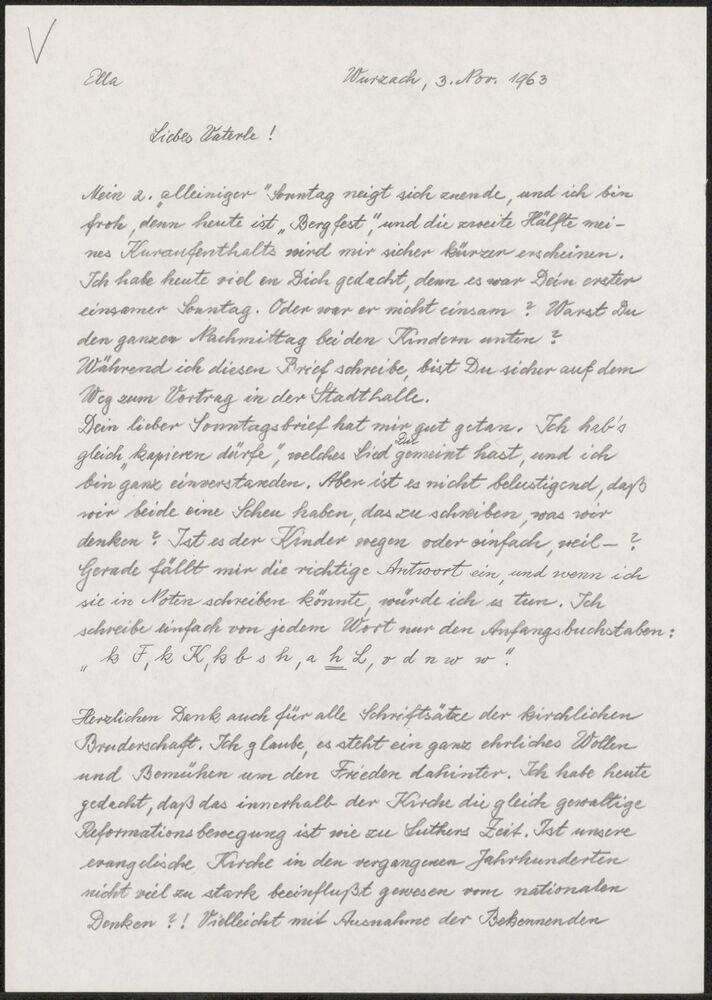 Ella
Wurzach, 3. Nov. 1963
Liebes Vaterle !
Mein 2. "alleiniger" Sonntag neigt sich zuende, und ich bin
froh, denn heute ist "Bergfest", und die zweite Hälfte mei-
nes Kuraufenthalts wird mir sicher kürzer erscheinen.
Ich habe heute viel an Dich gedacht, denn es war Dein erster
einsamer Sonntag. Oder war er nicht einsam ? Warst Du
den ganzen Nachmittag bei den Kindern unten ?
Während ich diesen Brief schreibe, bist Du sicher auf dem
Weg zum Vortrag in der Stadthalle.
Dein lieber Sonntagsbrief hat mir gut getan. Ich hab's
gleich "kapieren dürfe", welches Lied Du gemeint hast, und ich
bin ganz einverstanden. Aber ist es nicht belustigend, daß
wir beide eine Scheu haben, das zu schreiben, was wir
denken ? Ist es der Kinder wegen oder einfach, weil – ?
Gerade fällt mir die richtige Antwort ein, und wenn ich
sie in Noten schreiben könnte, würde ich es tun. Ich
schreibe einfach von jedem Wort nur den Anfangsbuchstaben:
"k F, k K, k b s h, a h L, v d n w w".
Herzlichen Dank auch für alle Schriftsätze der kirchlichen
Bruderschaft. Ich glaube, es steht ein ganz ehrliches Wollen
und Bemühen um den Frieden dahinter. Ich habe heute
gedacht, daß das innerhalb der Kirche die gleich gewaltige
Reformationsbewegung ist wie zu Luthers Zeit. Ist unsere
evangelische Kirche in den vergangenen Jahrhunderten
nicht viel zu stark beeinflußt gewesen vom nationalen
Denken ?! Vielleicht mit Ausnahme der Bekennenden